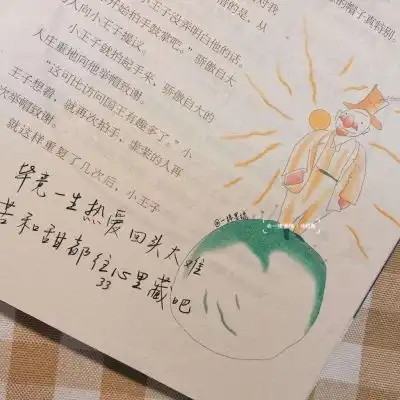 的帽子真特别。
对我
的是，从
小王子没弄明白他的话。
开始拍手鼓掌吧。”骄傲自大
人向小王子提议。
小王子就拍起手来，骄傲自大的
人庄重地向他举帽致谢。
“这可比访问国王有趣多了。”小
王子想着，就再次拍手，虚荣的人再
次举帽致谢。
就这样重复了几次后，小王子
毕竟一生热爱回头太难
苦和甜都往心里藏吧
33